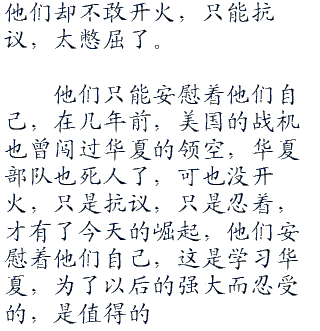 他们却不敢开火，只能抗
议，太憋屈了。
他们只能安慰着他们自
己，在几年前，美国的战机
也曾闯过华夏的领空，华夏
部队也死人了，可也没开
火，只是抗议，只是忍着，
才有了今天的崛起，他们安
慰着他们自己，这是学习华
夏，为了以后的强大而忍受
的，是值得的